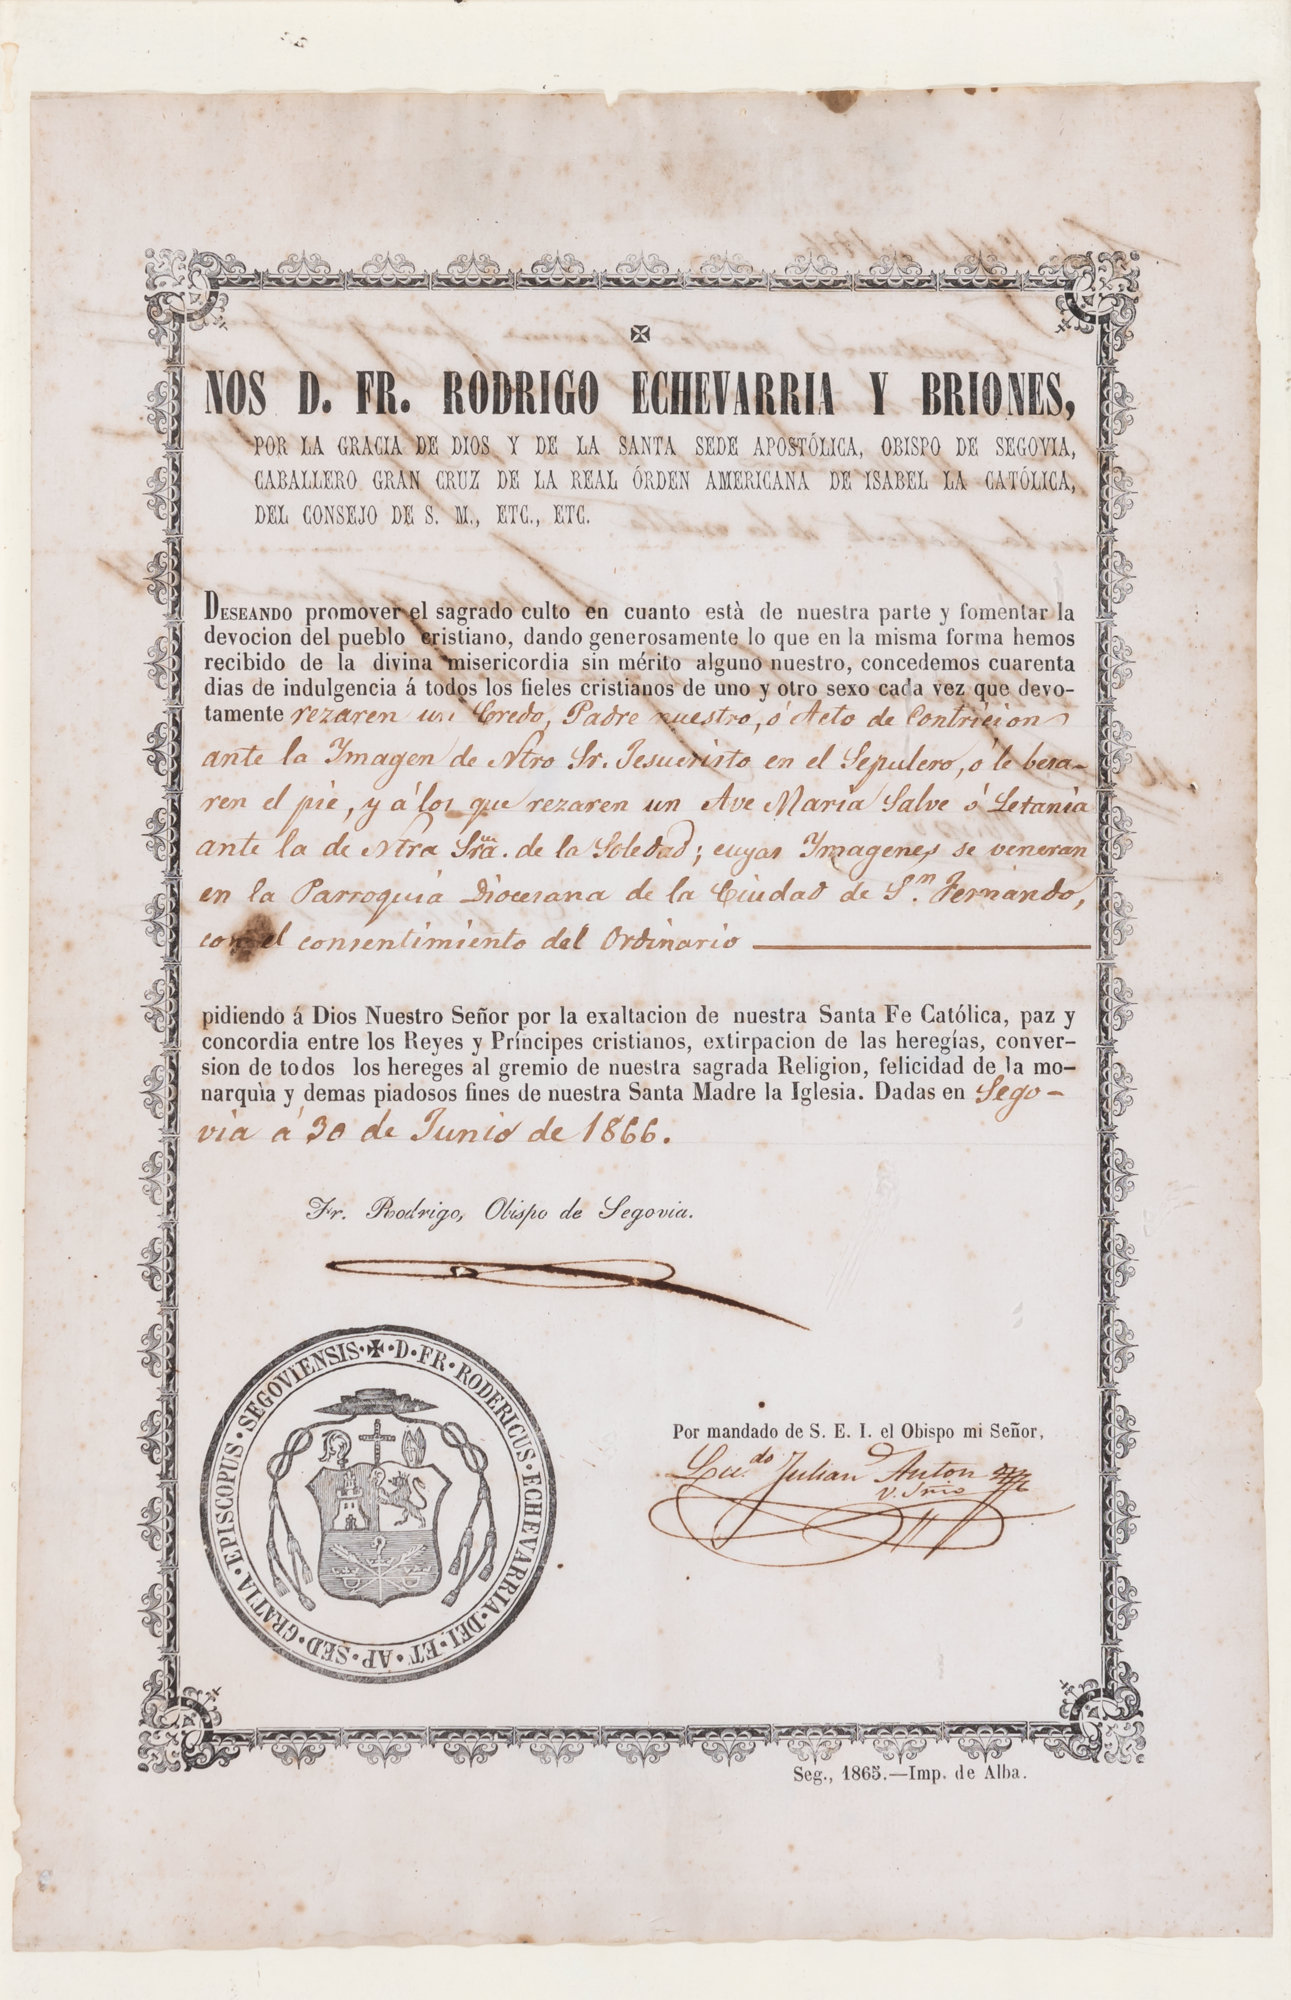 NOS D. FR. RODRIGO ECHEVARRIA Y BRIONES,
POR LA GRACIA DE DIOS Y DE LA SANTA SEDE APOSTÓLICA, OBISPO DE SEGOVIA,
CABALLERO GRAN CRUZ DE LA REAL ÓRDEN AMERICANA DE ISABEL LA CATÓLICA,
DEL CONSEJO DE S. M., ETC., ETC.
DESEANDO promover el sagrado culto en cuanto està de nuestra parte y fomentar la
devocion del pueblo cristiano, dando generosamente lo que en la misma forma hemos
recibido de la divina misericordia sin mérito alguno nuestro, concedemos cuarenta
dias de indulgencia á todos los fieles cristianos de uno y otro sexo cada vez que devo-
tamente rezaren un Credo, Padre nuestro, ó Acto de Contricion
ante la Ymagen de Ntro Sr. Jesucristo en el Sepulcro, ó le besa-
ren el pie, y á los que rezaren un Ave Maria Salve ó Letania
ante la de Ntra Sra. de la Soledad; cuyas Ymagenes se veneran
en la Parroquia Diocesana de la Ciudad de Sn. Fernando,
con el consentimiento del Ordinario
pidiendo á Dios Nuestro Señor por la exaltacion de nuestra Santa Fe Católica, paz y
concordia entre los Reyes y Príncipes cristianos, extirpacion de las heregías, conver-
sion de todos los hereges al gremio de nuestra sagrada Religion, felicidad de la mo-
narquìa y demas piadosos fines de nuestra Santa Madre la Iglesia. Dadas en Sego-
via á 30 de Junio de 1866.
Fr. Rodrigo, Obispo de Segovia.
D·FR·RODERICUS·ECHEVARRIA·DEI·ET·AP·SED·GRATIA·EPISCOPUS·SEGOVIENSIS·
Por mandado de S. E. I. el Obispo mi Señor,
Licdo Julian Anton
V. Srio
Seg., 1865.—Imp. de Alba.